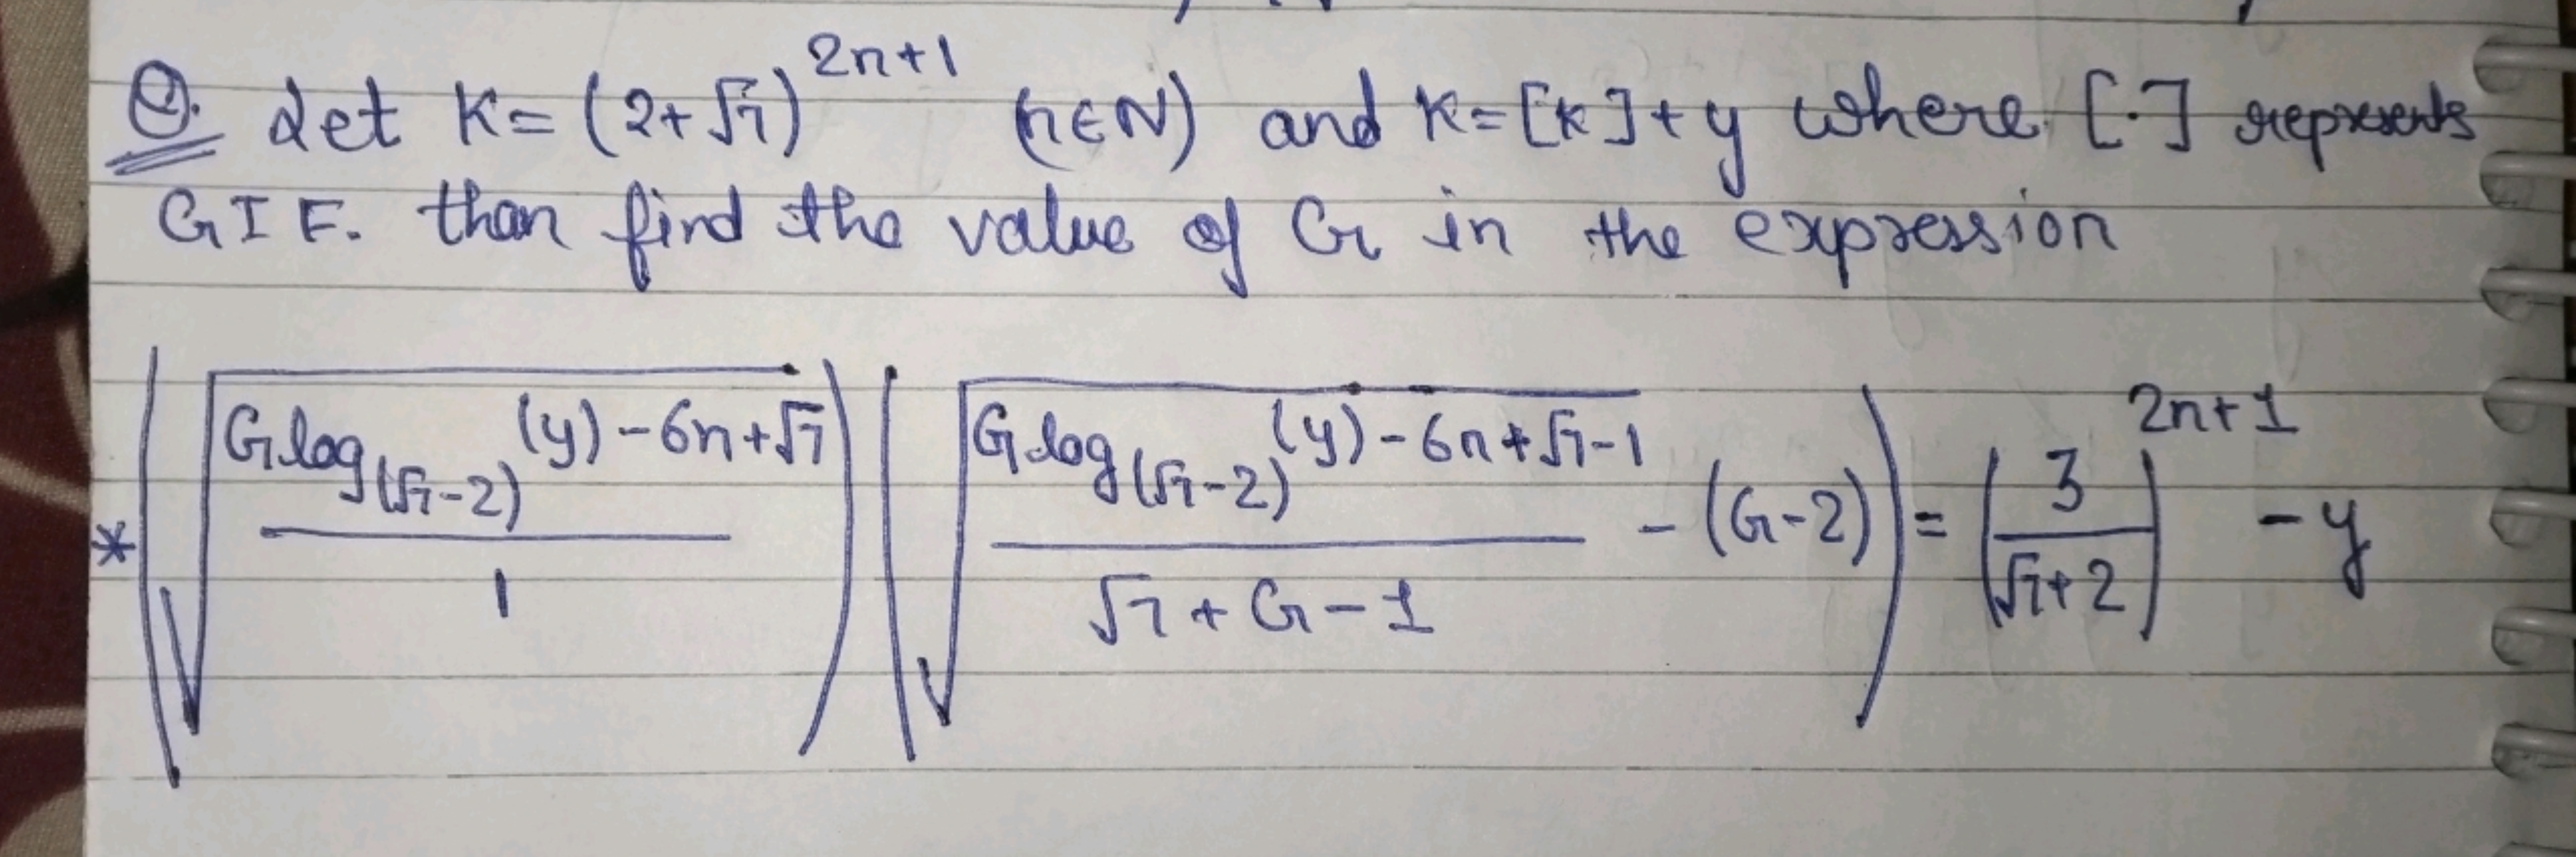 Q. Let K = (2+√7)^{2n+1} (n∈N) and K=[K]+y where [·] represents
GIF. than find the value of G in the expression
* (√((G log_{(√7-2)}(y) - 6n + √7) / 1)) (√((G log_{(√7-2)}(y) - 6n + √7 - 1) / (√7 + G - 1)) - (G-2)) = (3 / (√7+2))^{2n+1} - y